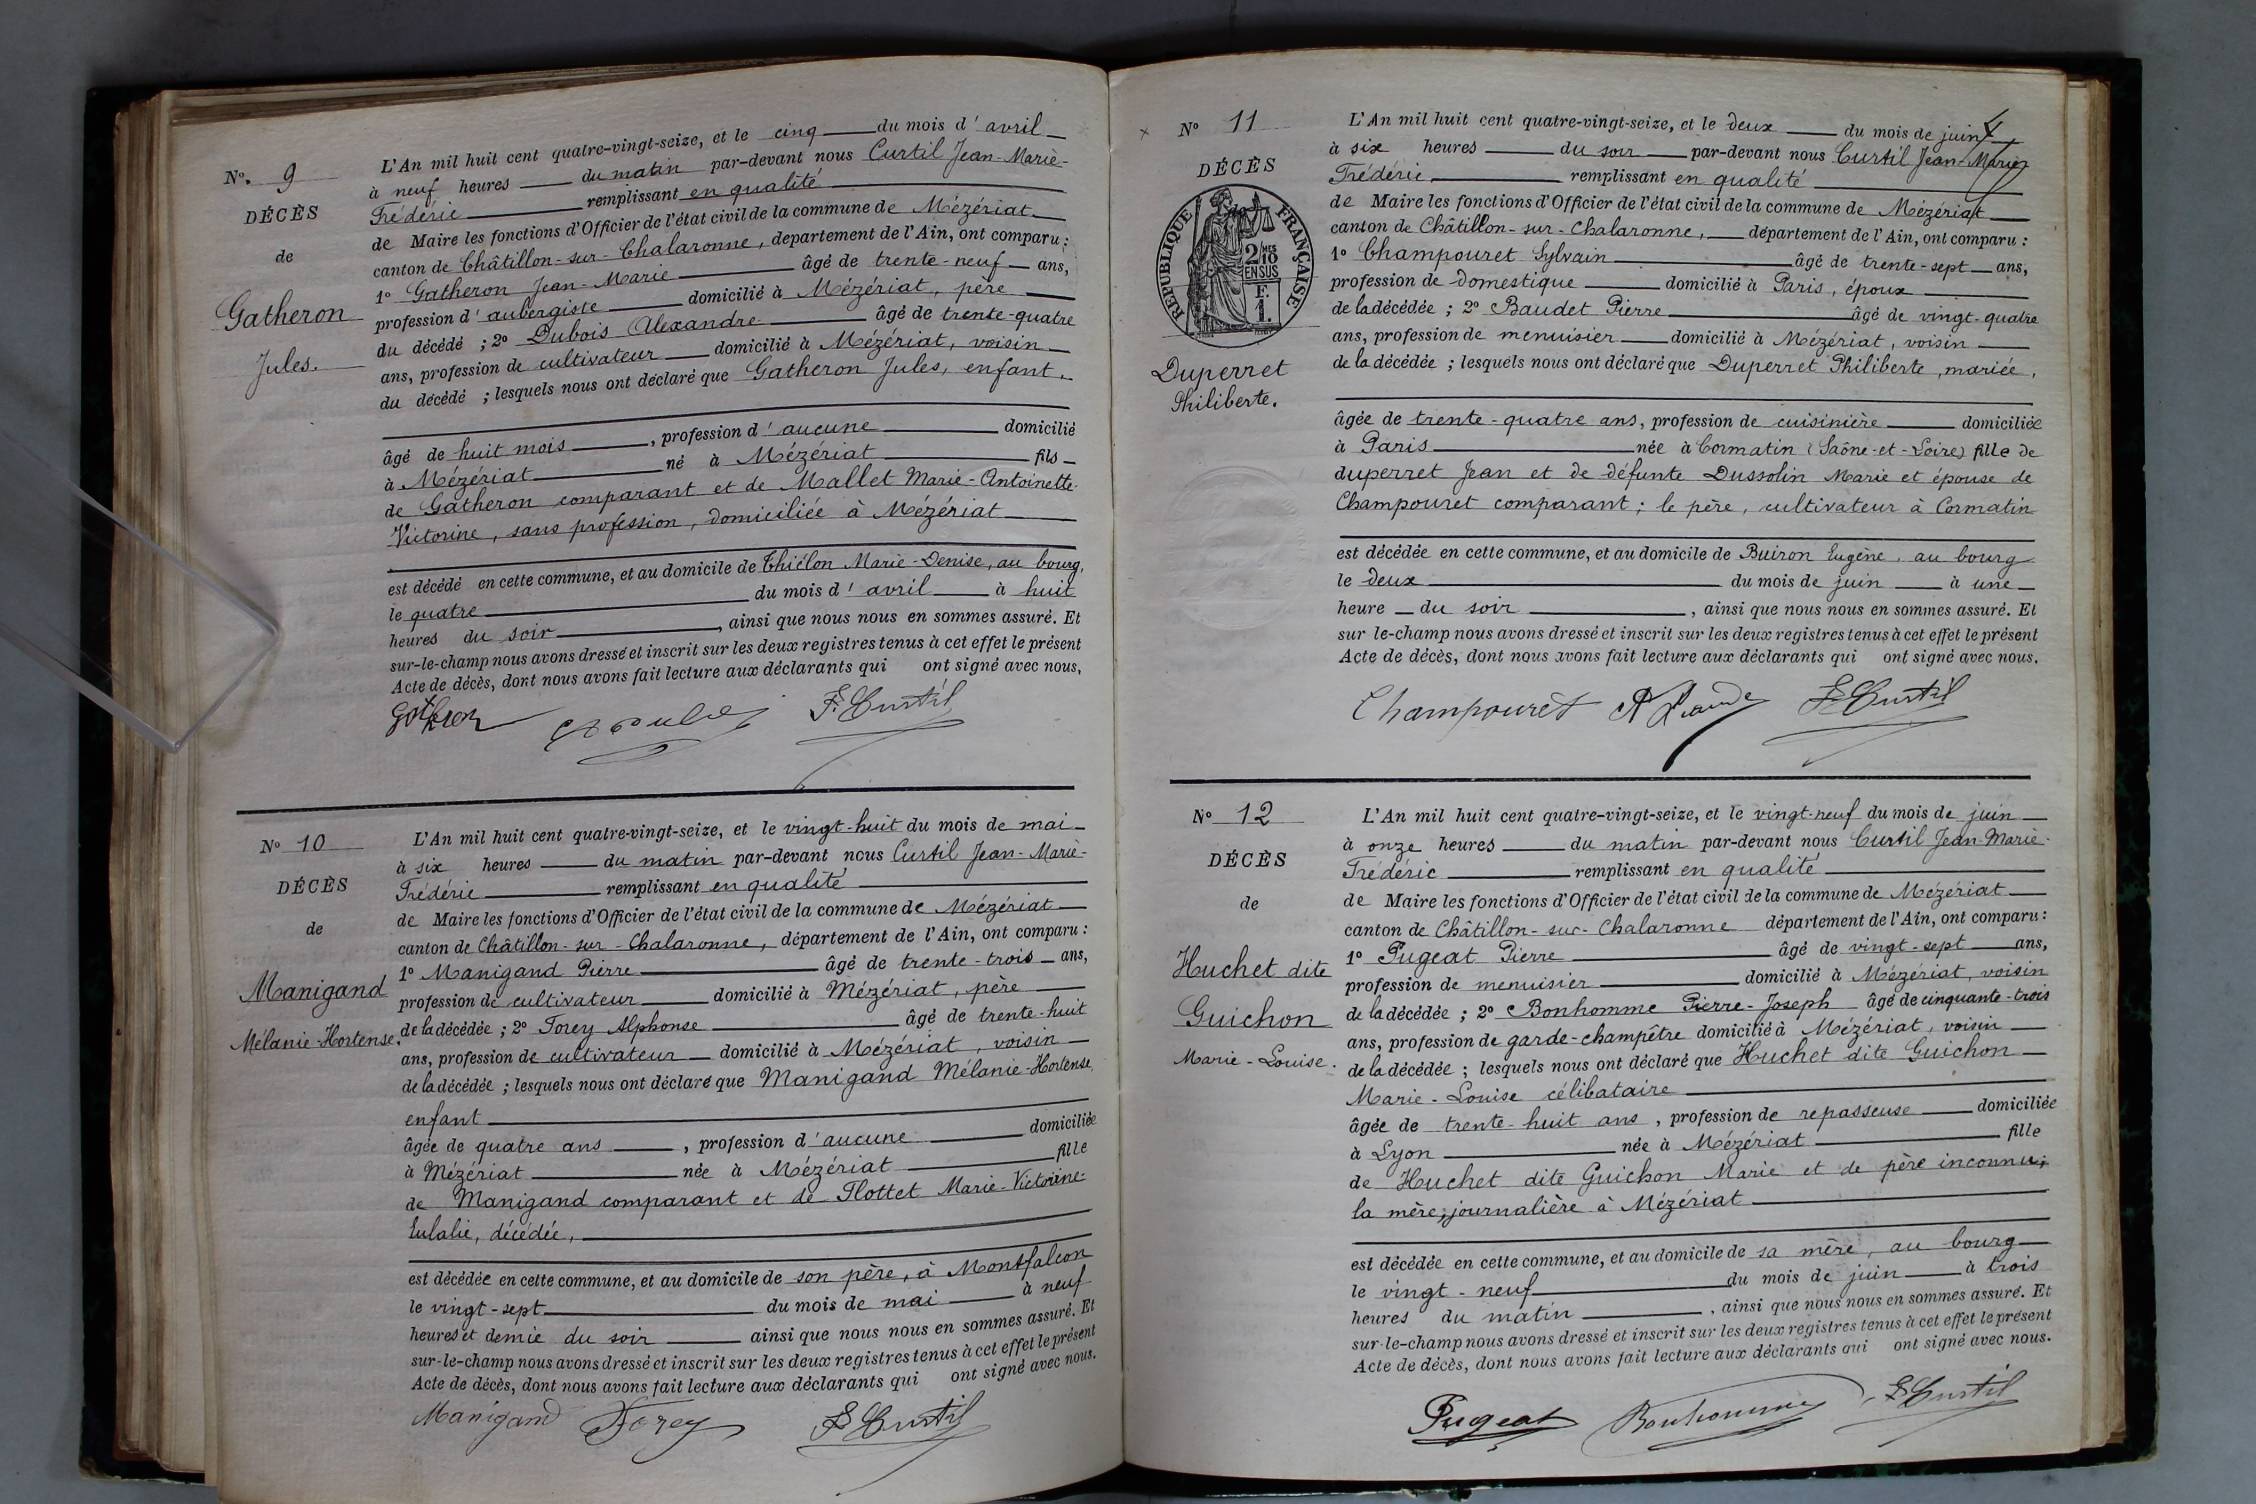 N° 9
DÉCÈS
de
Gatheron
Jules.
L'An mil huit cent quatre-vingt-seize, et le cinq du mois d'avril
à neuf heures du matin par-devant nous Curtil Jean-Marie-
Frédéric remplissant en qualité
de Maire les fonctions d'Officier de l'état civil de la commune de Mézériat
canton de Châtillon-sur-Chalaronne, departement de l'Ain, ont comparu :
1° Gatheron Jean-Marie âgé de trente-neuf ans,
profession d'aubergiste domicilié à Mézériat, père
du décédé ; 2° Dubois Alexandre âgé de trente-quatre
ans, profession de cultivateur domicilié à Mézériat, voisin
du décédé ; lesquels nous ont déclaré que Gatheron Jules, enfant,
âgé de huit mois, profession d'aucune domicilié
à Mézériat né à Mézériat fils
de Gatheron comparant et de Mallet Marie-Antoinette
Victorine, sans profession, domiciliée à Mézériat
est décédé en cette commune, et au domicile de Thiélon Marie-Denise, au bourg,
le quatre du mois d'avril à huit
heures du soir, ainsi que nous nous en sommes assuré. Et
sur-le-champ nous avons dressé et inscrit sur les deux registres tenus à cet effet le présent
Acte de décès, dont nous avons fait lecture aux déclarants qui ont signé avec nous,
F. Curtil
N° 10
DÉCÈS
de
Manigand
Mélanie-Hortense.
L'An mil huit cent quatre-vingt-seize, et le vingt-huit du mois de mai
à six heures du matin par-devant nous Curtil Jean-Marie-
Frédéric remplissant en qualité
de Maire les fonctions d'Officier de l'état civil de la commune de Mézériat
canton de Châtillon-sur-Chalaronne, département de l'Ain, ont comparu :
1° Manigand Pierre âgé de trente-trois ans,
profession de cultivateur domicilié à Mézériat, père
de la décédée ; 2° Forey Alphonse âgé de trente-huit
ans, profession de cultivateur domicilié à Mézériat, voisin
de la décédée ; lesquels nous ont déclaré que Manigand Mélanie-Hortense,
enfant
âgée de quatre ans, profession d'aucune domiciliée
à Mézériat née à Mézériat fille
de Manigand comparant et de Flottet Marie-Victorine-
Eulalie, décédée,
est décédée en cette commune, et au domicile de son père, à Montfalcon
le vingt-sept du mois de mai à neuf
heures et demie du soir ainsi que nous nous en sommes assuré. Et
sur-le-champ nous avons dressé et inscrit sur les deux registres tenus à cet effet le présent
Acte de décès, dont nous avons fait lecture aux déclarants qui ont signé avec nous.
Manigand Forey F. Curtil
4
N° 11
DÉCÈS
RÉPUBLIQUE FRANÇAISE
2/10 MES
EN SUS
F.
1.
Duperret
Philiberte.
L'An mil huit cent quatre-vingt-seize, et le deux du mois de juin
à six heures du soir par-devant nous Curtil Jean-Marie
Frédéric remplissant en qualité
de Maire les fonctions d'Officier de l'état civil de la commune de Mézériat
canton de Châtillon-sur-Chalaronne, département de l'Ain, ont comparu :
1° Champouret Sylvain âgé de trente-sept ans,
profession de domestique domicilié à Paris, époux
de la décédée ; 2° Baudet Pierre âgé de vingt-quatre
ans, profession de menuisier domicilié à Mézériat, voisin
de la décédée ; lesquels nous ont déclaré que Duperret Philiberte, mariée,
âgée de trente-quatre ans, profession de cuisinière domiciliée
à Paris née à Cormatin (Saône-et-Loire) fille de
duperret Jean et de défunte Dussolin Marie et épouse de
Champouret comparant ; le père, cultivateur à Cormatin
est décédée en cette commune, et au domicile de Buiron Eugène, au bourg
le deux du mois de juin à une
heure du soir, ainsi que nous nous en sommes assuré. Et
sur le-champ nous avons dressé et inscrit sur les deux registres tenus à cet effet le présent
Acte de décès, dont nous avons fait lecture aux déclarants qui ont signé avec nous.
Champouret F. Curtil
N° 12
DÉCÈS
de
Huchet dite
Guichon
Marie-Louise.
L'An mil huit cent quatre-vingt-seize, et le vingt-neuf du mois de juin
à onze heures du matin par-devant nous Curtil Jean-Marie-
Frédéric remplissant en qualité
de Maire les fonctions d'Officier de l'état civil de la commune de Mézériat
canton de Châtillon-sur-Chalaronne département de l'Ain, ont comparu :
1° Pugeat Pierre âgé de vingt-sept ans,
profession de menuisier domicilié à Mézériat, voisin
de la décédée ; 2° Bonhomme Pierre-Joseph âgé de cinquante-trois
ans, profession de garde-champêtre domicilié à Mézériat, voisin
de la décédée ; lesquels nous ont déclaré que Huchet dite Guichon
Marie-Louise célibataire
âgée de trente-huit ans, profession de repasseuse domiciliée
à Lyon née à Mézériat fille
de Huchet dite Guichon Marie et de père inconnu;
la mère, journalière à Mézériat
est décédée en cette commune, et au domicile de sa mère, au bourg
le vingt-neuf du mois de juin à trois
heures du matin, ainsi que nous nous en sommes assuré. Et
sur-le-champ nous avons dressé et inscrit sur les deux registres tenus à cet effet le présent
Acte de décès, dont nous avons fait lecture aux déclarants qui ont signé avec nous.
Pugeat Bonhomme F. Curtil